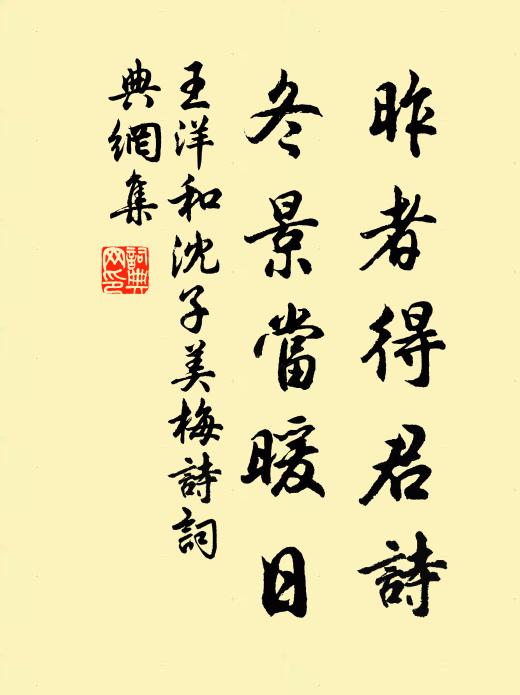 昨者得君詩
冬景當暖日
王洋和沈子美梅詩詞
典網集
詞典
网印